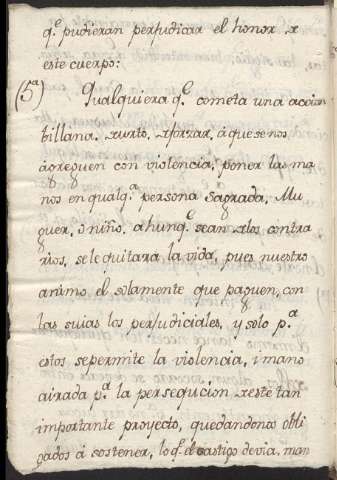 q.e pudieran perjudicar el honor de
este cuerpo:
(5ª) Qualquiera q.e cometa una accion
billana, hurto, forzar, á que se nos
ágreguen con violencia, poner las ma
nos en qualq.a persona Sagrada, Mu
guer, ó niño, ahunq.e sean de los contra
rios, se le quitara la vida, pues nuestro
animo el solamente que paguen, con
las suias los perjudiciales, y solo p.a
estos se permite la violencia, i mano
airada p.a la persequcion de este tan
importante proyecto, quedandonos obli
gados á sostener, lo q.e el castigo devia, man